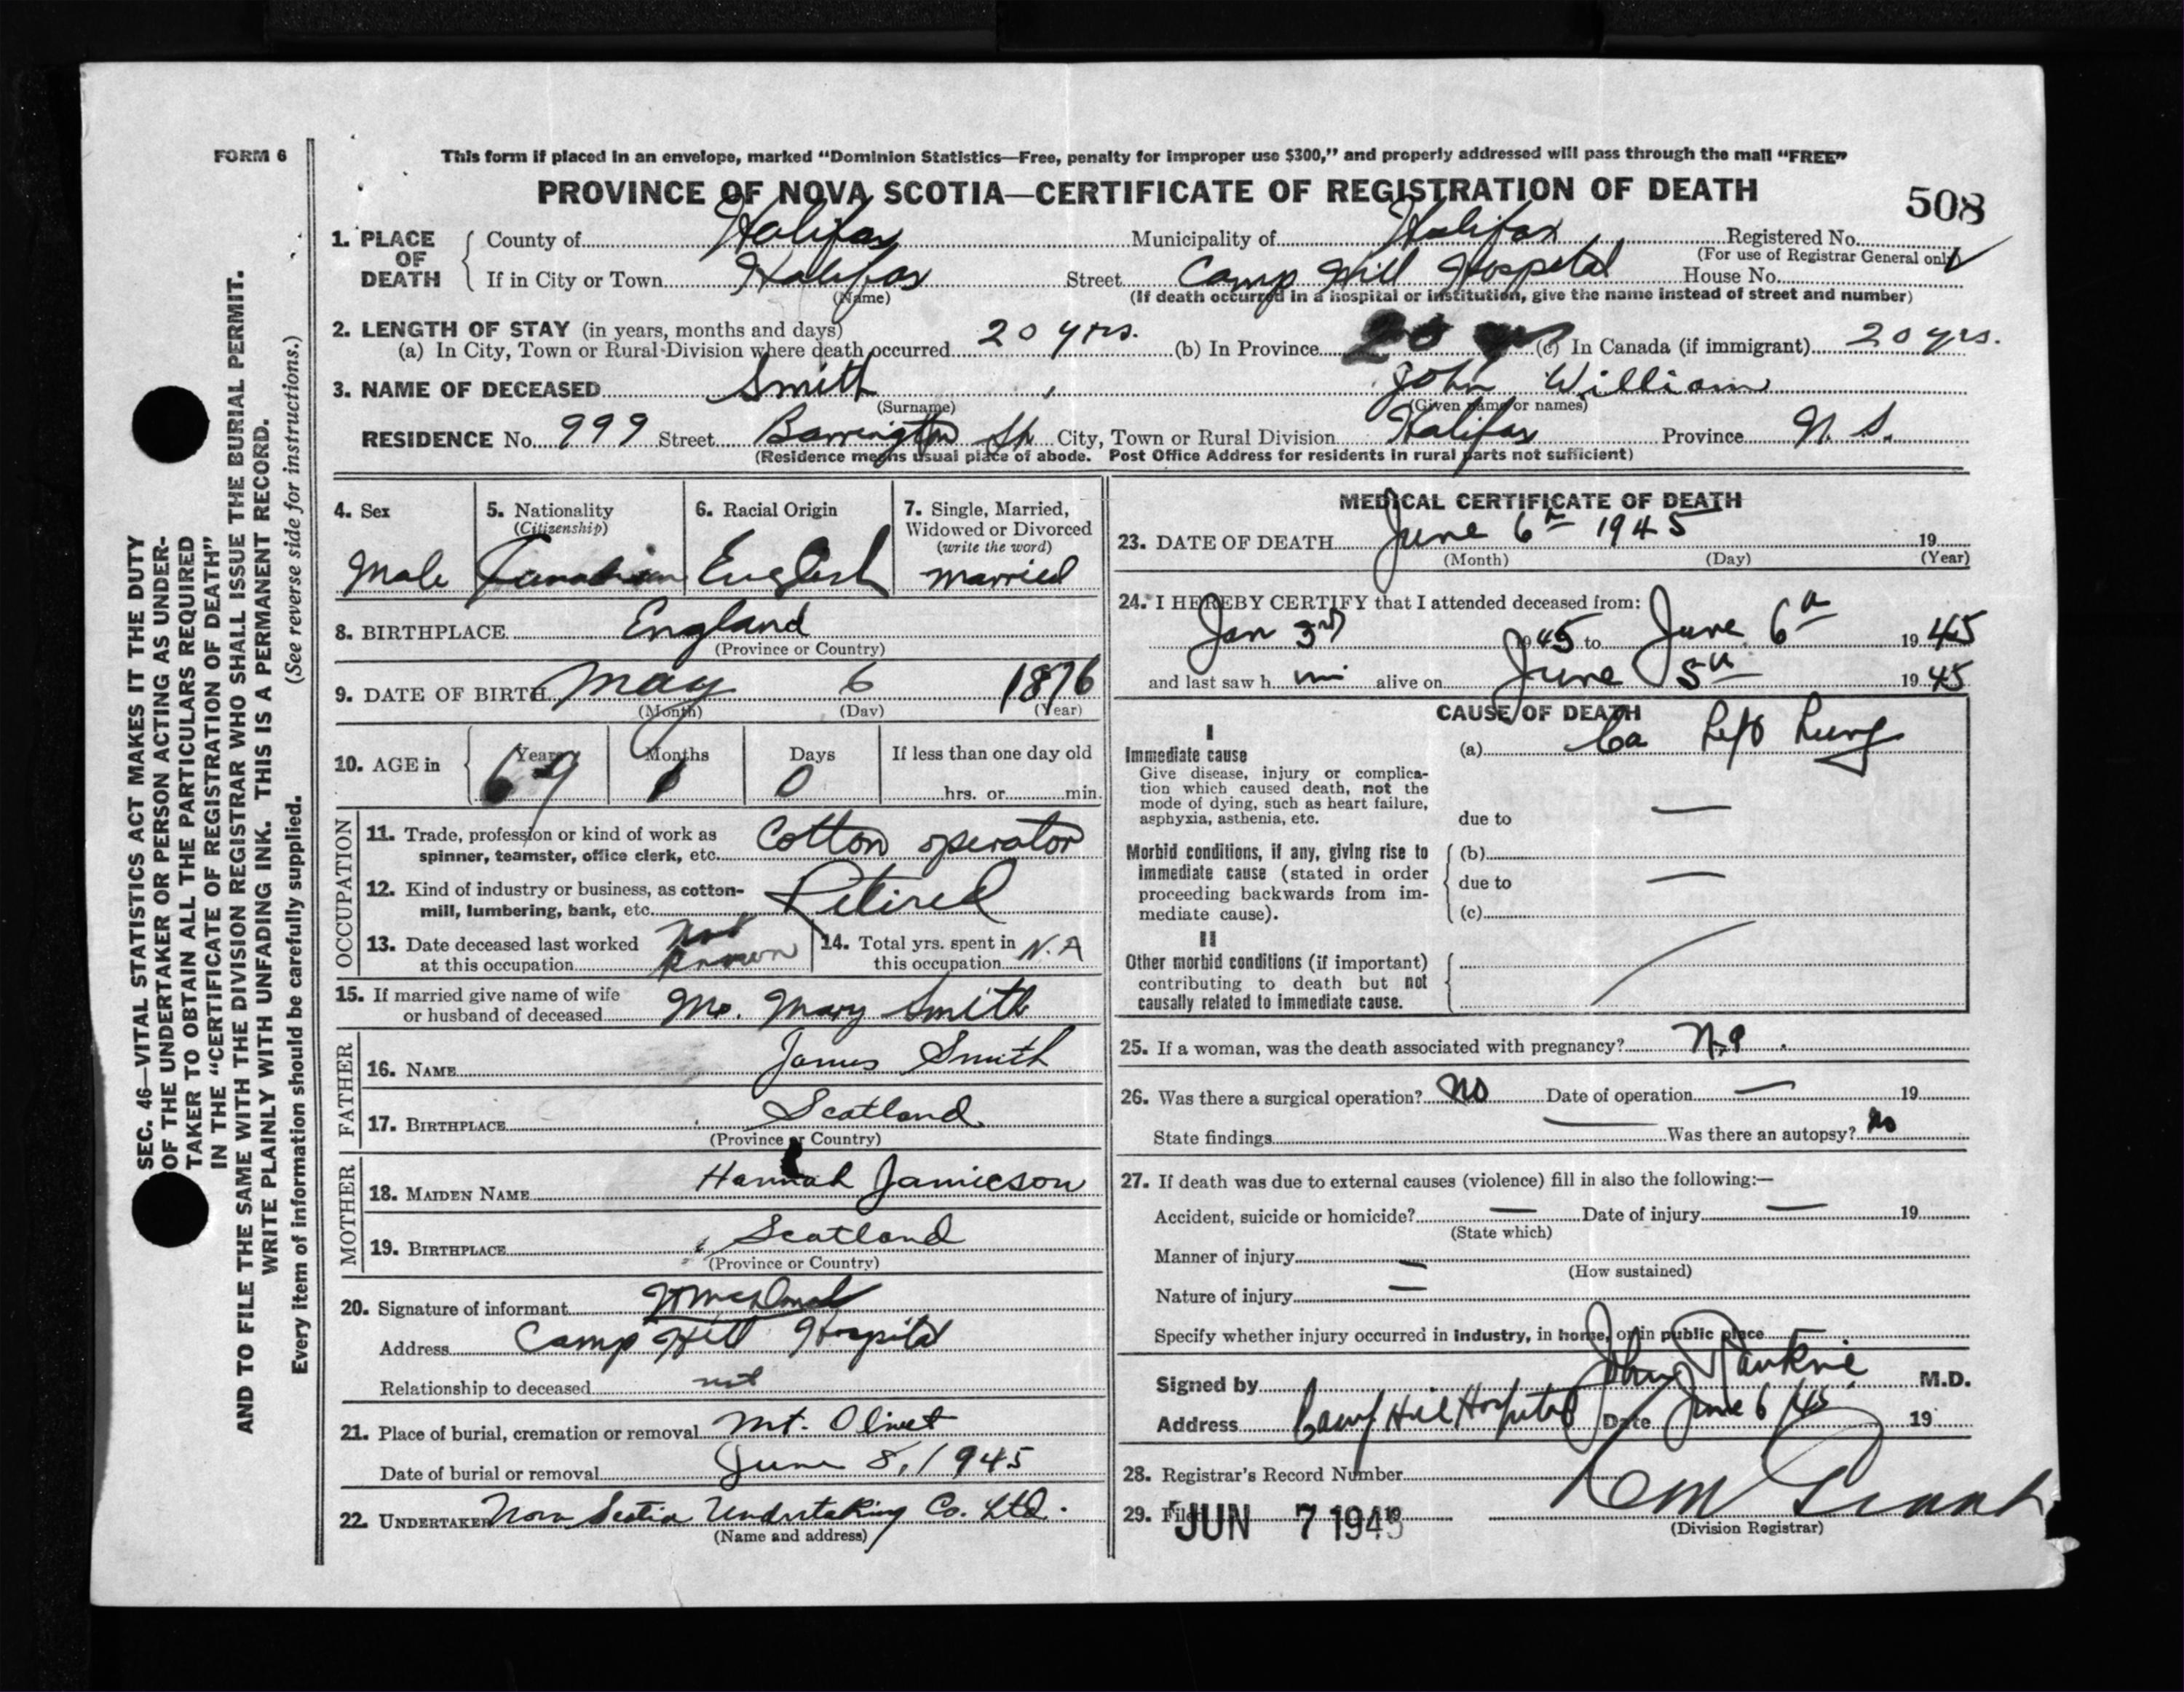 FORM 6
This form if placed in an envelope, marked "Dominion Statistics—Free, penalty for improper use $300," and properly addressed will pass through the mail "FREE"
PROVINCE OF NOVA SCOTIA—CERTIFICATE OF REGISTRATION OF DEATH
508
1. PLACE OF DEATH
County of Halifax Municipality of Halifax Registered No.
(For use of Registrar General only)
If in City or Town Halifax Street Camp Hill Hospital House No.
(Name) (If death occurred in a hospital or institution, give the name instead of street and number)
2. LENGTH OF STAY (in years, months and days)
(a) In City, Town or Rural Division where death occurred 20 yrs. (b) In Province 20 (c) In Canada (if immigrant) 20 yrs.
3. NAME OF DECEASED Smith, John William
(Surname) (Given name or names)
RESIDENCE No. 999 Street Barrington St. City, Town or Rural Division Halifax Province N. S.
(Residence means usual place of abode. Post Office Address for residents in rural parts not sufficient)
4. Sex
Male
5. Nationality
(Citizenship)
Canadian
6. Racial Origin
English
7. Single, Married,
Widowed or Divorced
(write the word)
married
8. BIRTHPLACE England
(Province or Country)
9. DATE OF BIRTH May 6 1876
(Month) (Day) (Year)
10. AGE in
Years Months Days If less than one day old
69 1 0 hrs. or min.
OCCUPATION
11. Trade, profession or kind of work as
spinner, teamster, office clerk, etc. Cotton operator
12. Kind of industry or business, as cotton-
mill, lumbering, bank, etc. Retired
13. Date deceased last worked
at this occupation not known
14. Total yrs. spent in
this occupation N.A
15. If married give name of wife
or husband of deceased Mrs. Mary Smith
FATHER
16. NAME James Smith
17. BIRTHPLACE Scotland
(Province or Country)
MOTHER
18. MAIDEN NAME Hannah Jamieson
19. BIRTHPLACE Scotland
(Province or Country)
20. Signature of informant
Address Camp Hill Hospital
Relationship to deceased not
21. Place of burial, cremation or removal Mt. Olivet
Date of burial or removal June 8, 1945
22. UNDERTAKER Nova Scotia Undertaking Co. Ltd.
(Name and address)
MEDICAL CERTIFICATE OF DEATH
23. DATE OF DEATH June 6th 1945 19
(Month) (Day) (Year)
24. I HEREBY CERTIFY that I attended deceased from:
Jan 3rd 1945 to June 6th 1945
and last saw h im alive on June 5th 1945
CAUSE OF DEATH
I
Immediate cause
Give disease, injury or complica-
tion which caused death, not the
mode of dying, such as heart failure,
asphyxia, asthenia, etc.
(a) Ca Left Lung
due to —
Morbid conditions, if any, giving rise to
immediate cause (stated in order
proceeding backwards from im-
mediate cause).
(b)
due to —
(c)
II
Other morbid conditions (if important)
contributing to death but not
causally related to immediate cause.
25. If a woman, was the death associated with pregnancy?
26. Was there a surgical operation? No Date of operation — 19
State findings — Was there an autopsy? No
27. If death was due to external causes (violence) fill in also the following:—
Accident, suicide or homicide? — Date of injury — 19
(State which)
Manner of injury —
(How sustained)
Nature of injury —
Specify whether injury occurred in industry, in home, or in public place
Signed by John M.D.
Address Camp Hill Hospital Date June 6/45 19
28. Registrar's Record Number
29. Filed JUN 7 1945 19
(Division Registrar)
SEC. 46—VITAL STATISTICS ACT MAKES IT THE DUTY
OF THE UNDERTAKER OR PERSON ACTING AS UNDER-
TAKER TO OBTAIN ALL THE PARTICULARS REQUIRED
IN THE "CERTIFICATE OF REGISTRATION OF DEATH"
AND TO FILE THE SAME WITH THE DIVISION REGISTRAR WHO SHALL ISSUE THE BURIAL PERMIT.
WRITE PLAINLY WITH UNFADING INK. THIS IS A PERMANENT RECORD.
Every item of information should be carefully supplied. (See reverse side for instructions.)